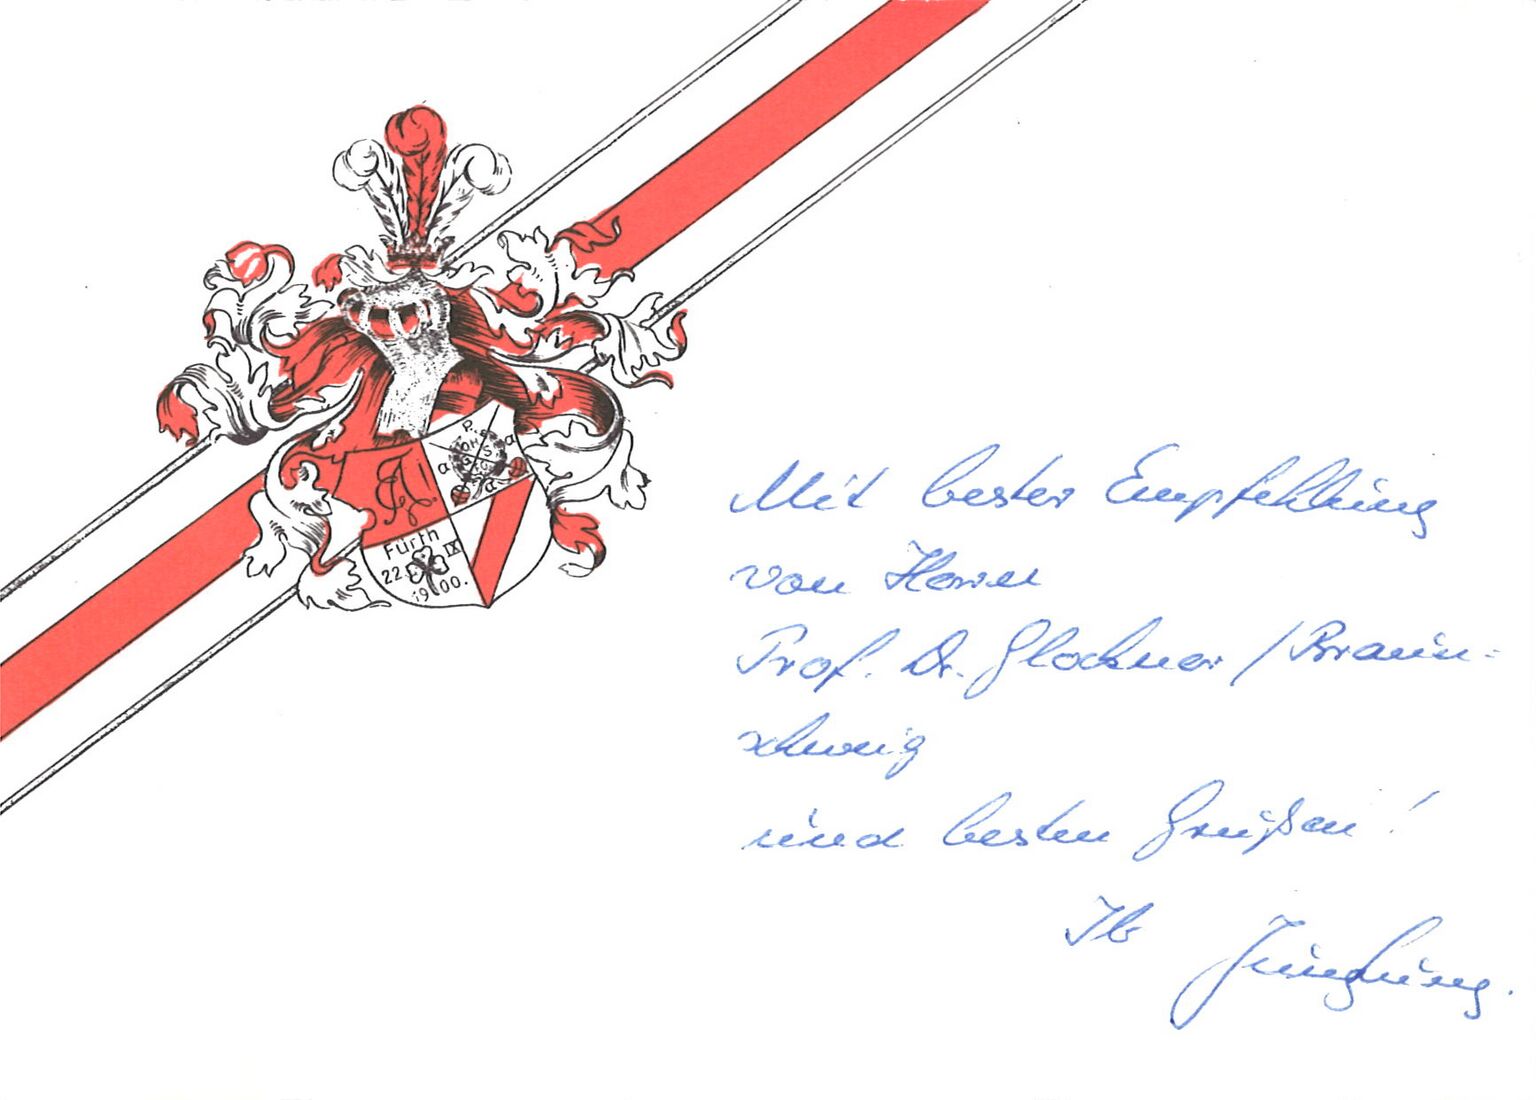 P.
a
a
a
Fürth
22. IX
1900.
Mit bester Empfehlung
von Herrn
Prof. Dr. Glockner / Braun-
schweig
und besten Grüßen!
Ib